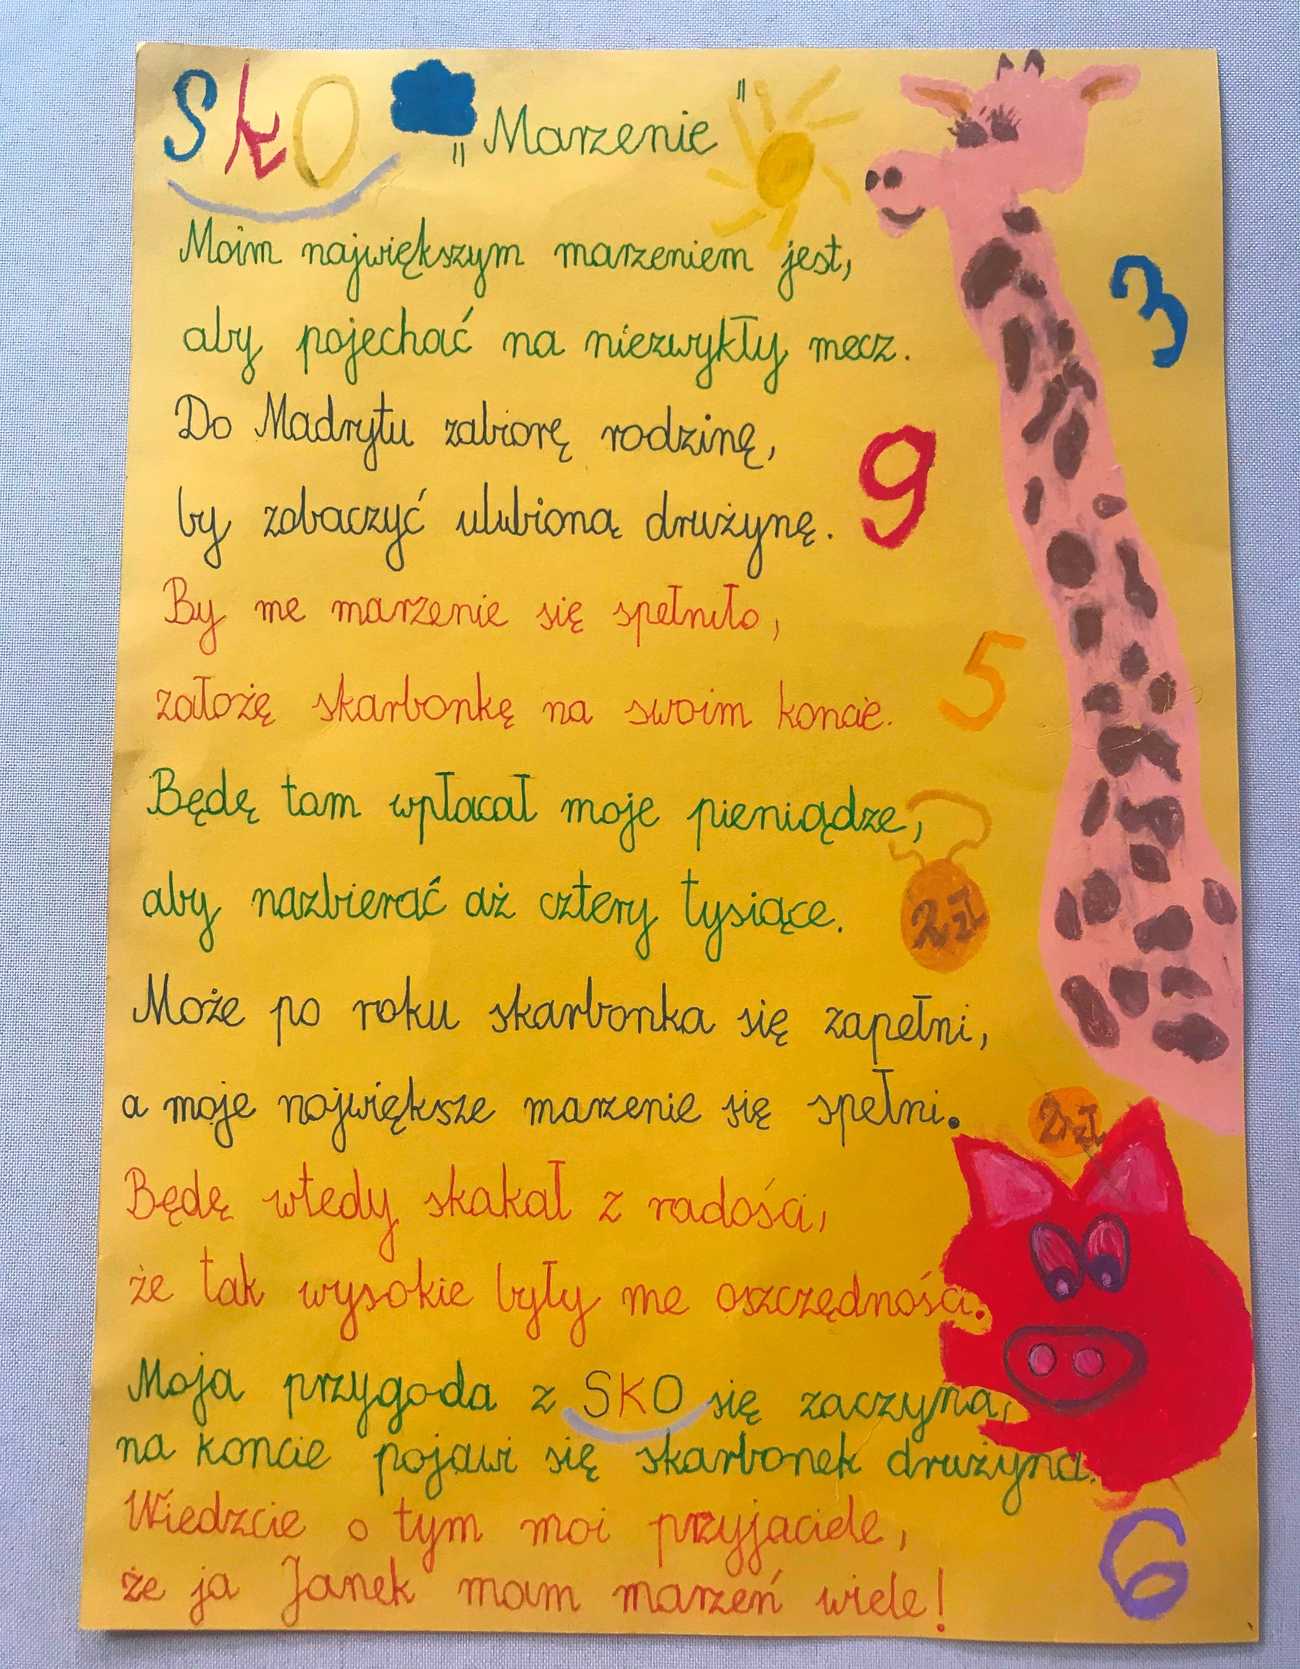 SKO „Marzenie”
Moim największym marzeniem jest,
3
aby pojechać na niezwykły mecz.
Do Madrytu zabiorę rodzinę,
9
by zobaczyć ulubioną drużynę.
By me marzenie się spełniło,
5
założę skarbonkę na swoim koncie.
Będę tam wpłacał moje pieniądze,
aby nazbierać aż cztery tysiące.
2zł
Może po roku skarbonka się zapełni,
a moje największe marzenie się spełni.
2zł
Będę wtedy skakał z radości,
że tak wysokie były me oszczędności.
Moja przygoda z SKO się zaczyna,
na koncie pojawi się skarbonek drużyna.
Wiedzcie o tym moi przyjaciele,
6
że ja Janek mam marzeń wiele!